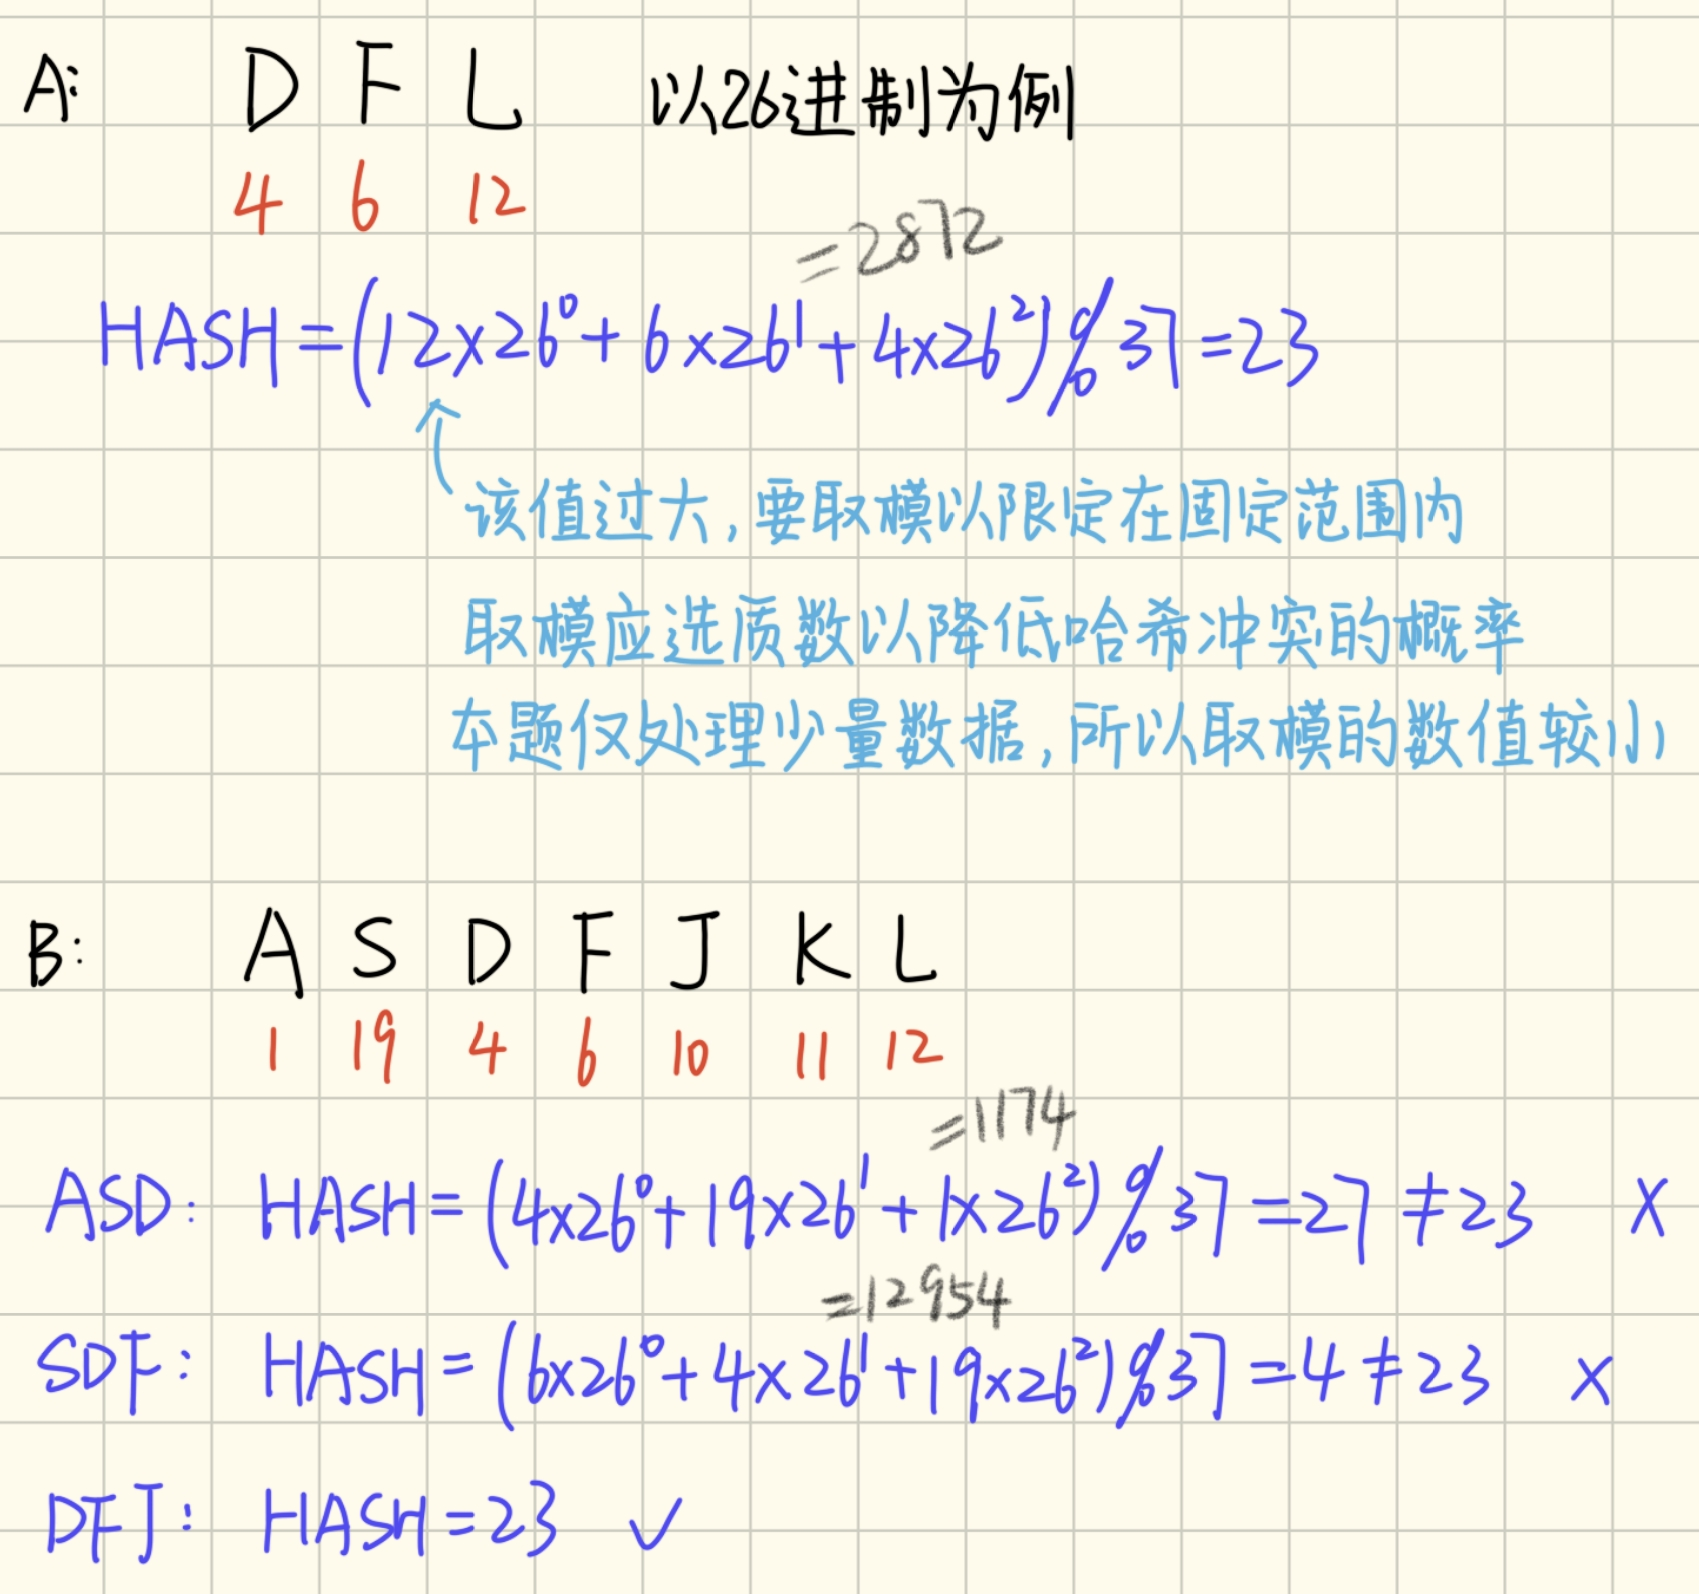 A: D F L 以26进制为例
4 6 12
=2872
HASH=(12×26⁰+6×26¹+4×26²)%37=23
该值过大,要取模以限定在固定范围内
取模应选质数以降低哈希冲突的概率
本题仅处理少量数据,所以取模的数值较小
B: A S D F J K L
1 19 4 6 10 11 12
=1174
ASD: HASH=(4×26⁰+19×26¹+1×26²)%37=27≠23 ×
=12954
SDF: HASH=(6×26⁰+4×26¹+19×26²)%37=4≠23 ×
DFJ: HASH=23 ✓